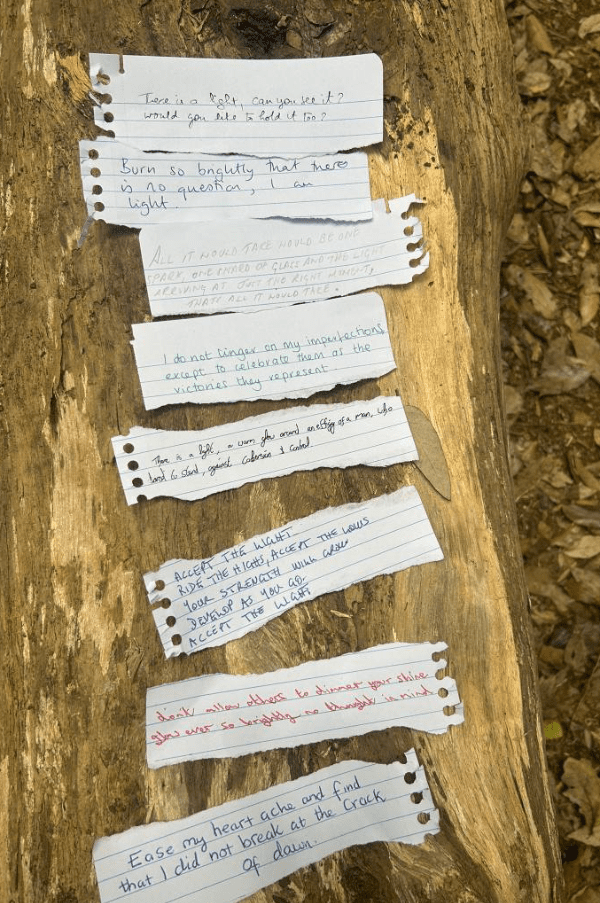 There is a light, can you see it?
Would you like to hold it too?
Burn so brightly that there
is no question, I am
light.
ALL IT WOULD TAKE WOULD BE ONE
SPARK, ONE SHARD OF GLASS AND THE LIGHT
ARRIVING AT JUST THE RIGHT MOMENT,
THATS ALL IT WOULD TAKE.
I do not linger on my imperfections
except to celebrate them as the
victories they represent
There is a light, a warm glow around an effigy of a man, who
used to stand, against & control
ACCEPT THE LIGHT
RIDE THE HIGHS, ACCEPT THE LOWS
YOUR STRENGTH WILL GROW
DEVELOP AS YOU GO.
ACCEPT THE LIGHT
don't allow others to dimmer your shine
glow ever so brightly no thought in mind
Ease my heart ache and find
that I did not break at the crack
of dawn.